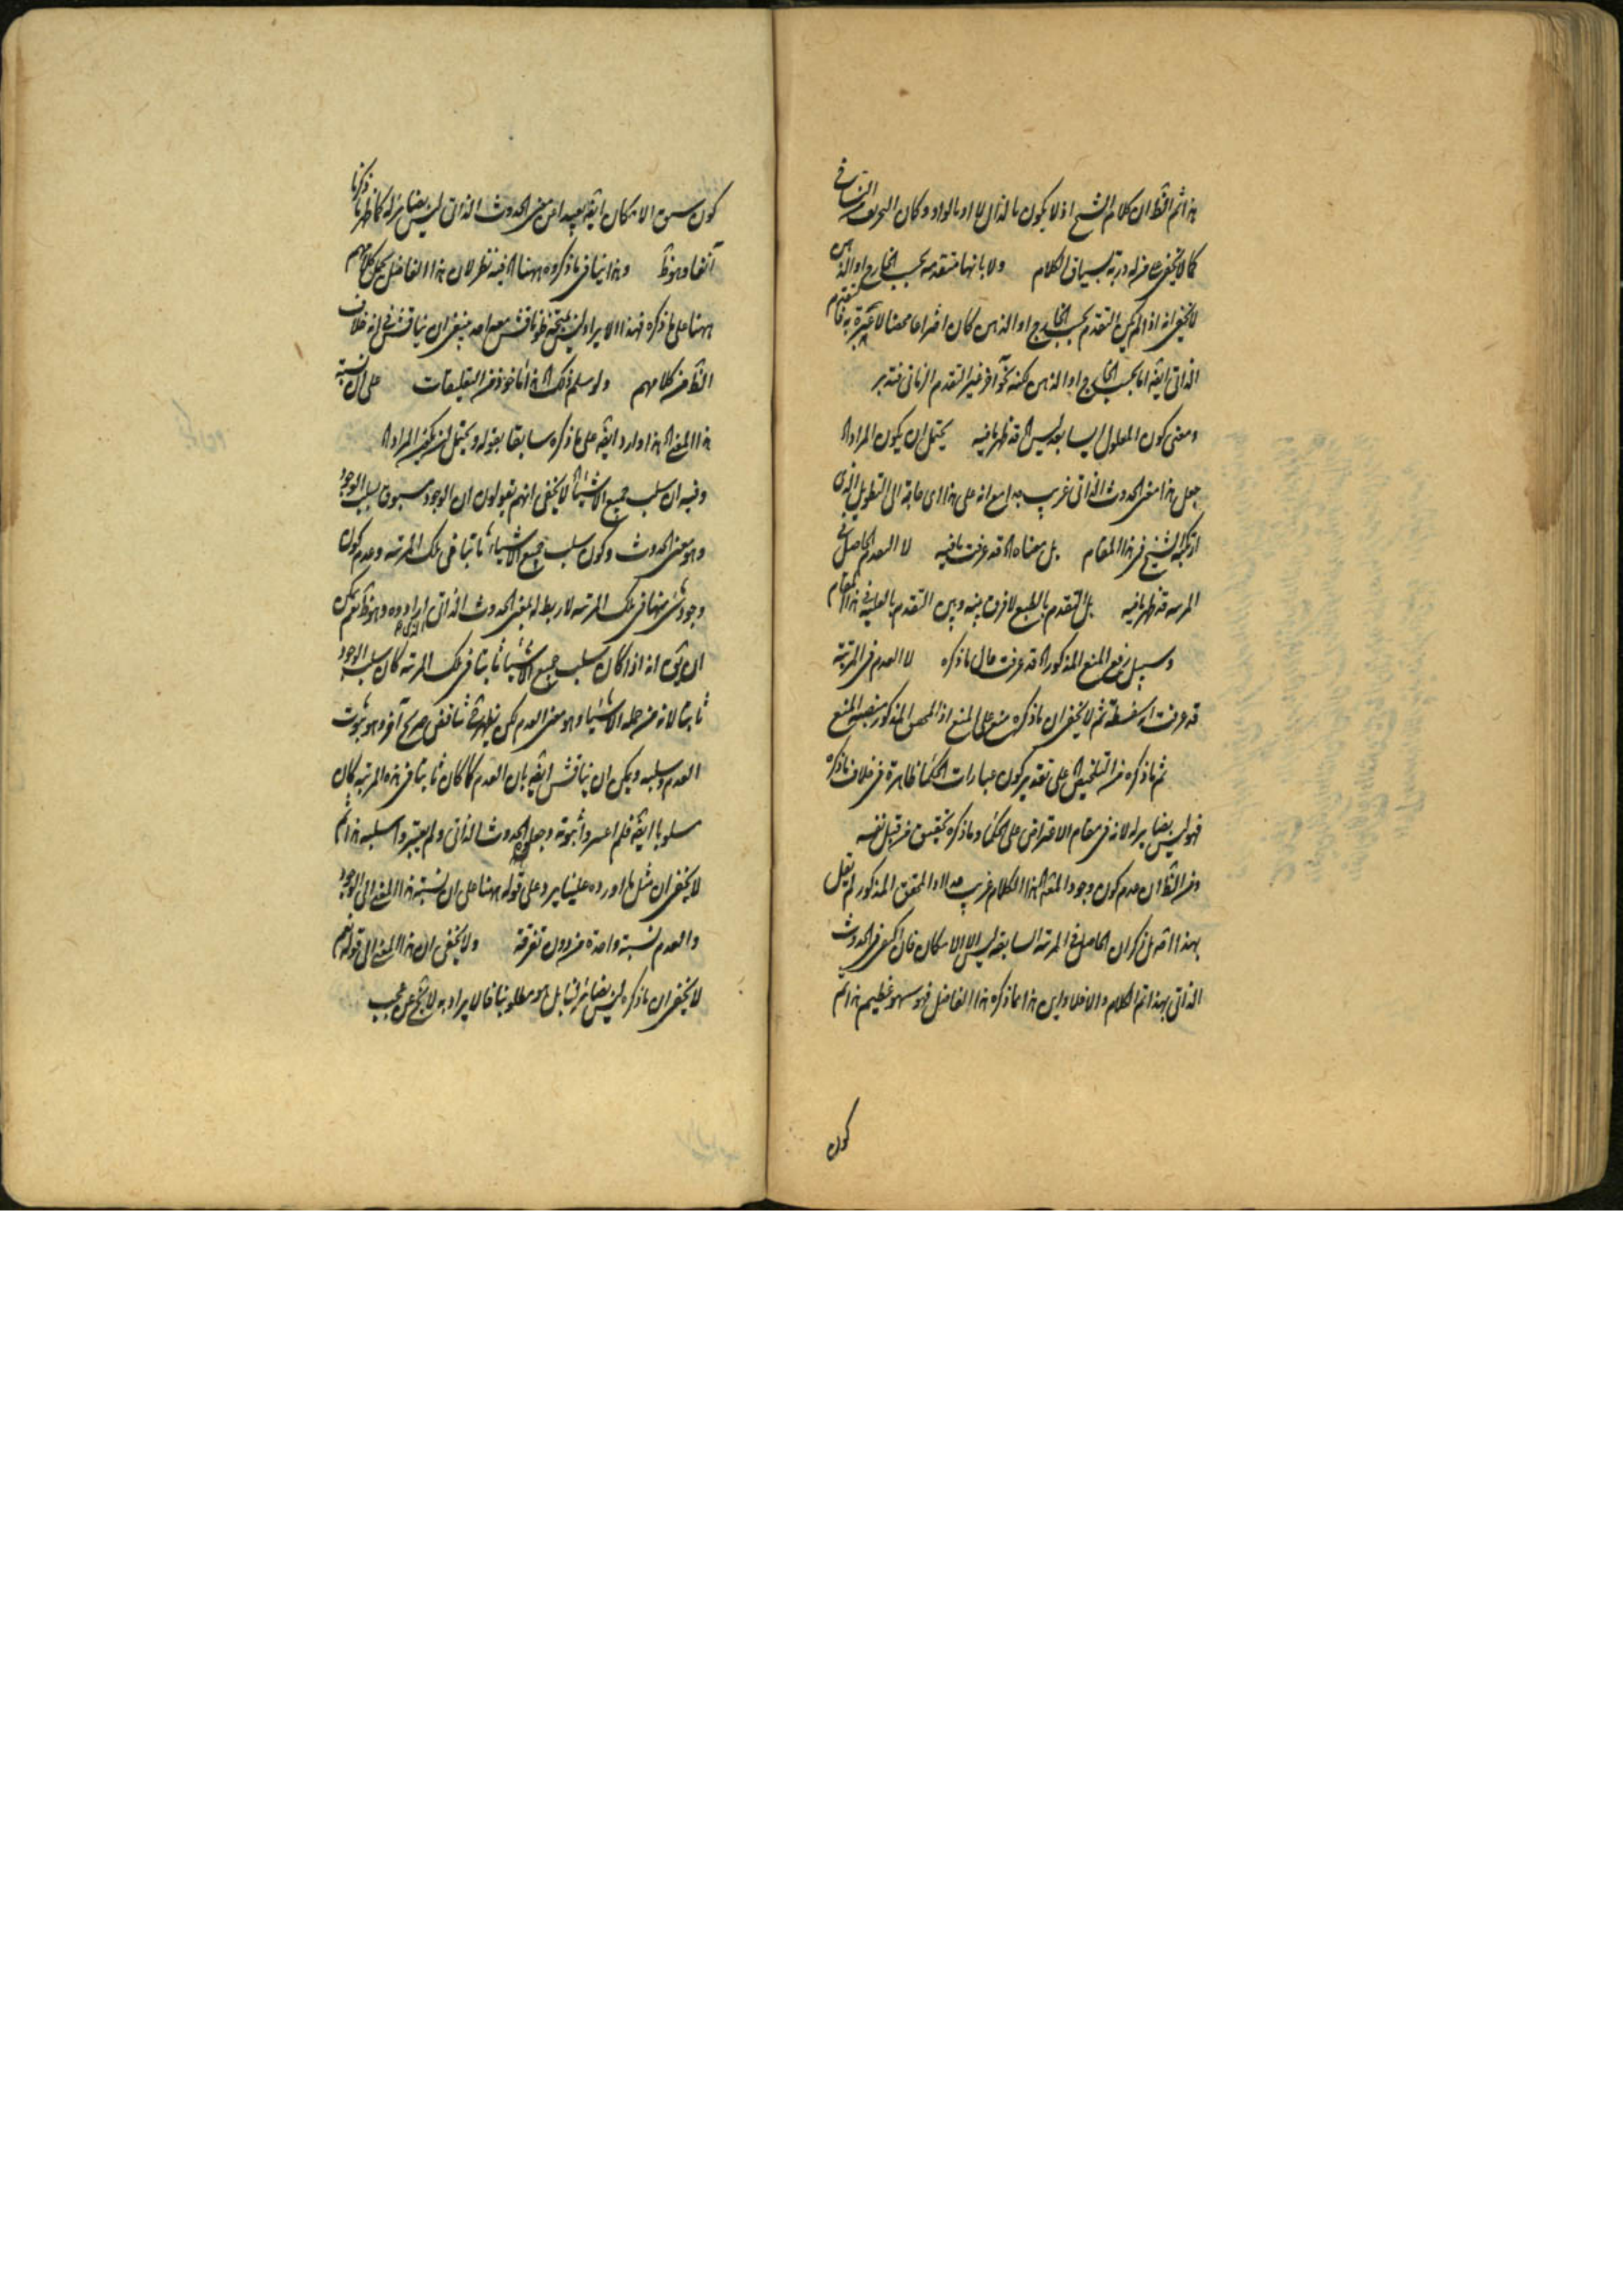 هذا ثم الظ ان كلام الشيخ اذ لا يكون بالذال لا او بالواو وكان التحريف من النساخ
كما لا يخفى على من له دربة بسياق الكلام ولا بانها متقدمة بحسب الخارج او الذهن
لا يخفى انه اذا لم يكن التقدم بحسب الخارج او الذهن كان اختراعا محضا لا عبرة به فالتقدم
الذاتى ايضا اما بحسب الخارج او الذهن لكنه نحو آخر غير التقدم الزمانى فتدبر
ومعنى كون المعلول ليسا بعد ليس اه قد ظهر ما فيه يحتمل ان يكون المراد اه
جعل هذا معنى الحدوث الذاتى غريب جدا مع انه على هذا اى حاجة الى التطويل الذى
ارتكبه الشيخ فى هذا المقام بل معناه اه قد عرفت ما فيه لا العدم الحاصل فى
المرتبة قد ظهر ما فيه بل التقدم بالطبع لا فرق بينه وبين التقدم بالعلية فى هذا المقام
وسبيل رفع المنع المذكور اه قد عرفت حال ما ذكره لا العدم فى المرتبة
قد عرفت انه سفسطة ثم لا يخفى ان ما ذكره منع على المنع اذ المذكور منصب المنع
ثم ما ذكره من التلخيص اه على تقدير كون عبارات الحكما ظاهرة فى خلاف ما ذكره
فهو ليس بضاير له لانه فى مقام الاعتراض على الحكما وما ذكره تحقيق من قبل نفسه
ومن الظ ان عدم كون وجود المعه اه هذا الكلام غريب جدا اذ المحقق المذكور لم يقل
بهذا اه بل ذكر ان الحاصل فى المرتبة السابقة ليس الا الامكان فان اكتفى فى الحدوث
الذاتى بهذا تم الكلام والا فلا واين هذا مما ذكره هذا الفاضل فهو سهو عظيم هذا ثم
كون
كون سبق الامكان ايضا بعيدا عن معنى الحدوث الذاتى ليس بضاير له كما ظهر مما ذكرنا
آنفا وهو ظ وهذا ينافى ما ذكروه ههنا اه فيه نظر لان هذا الفاضل يحمل كلامهم
ههنا على ما ذكره فهذا الايراد ليس بمتجه نعم لو ناقش معه احد ينبغى ان يناقش فى انه خلاف
الظ من كلامهم ولو سلم ذلك اه هذا مأخوذ من التعليقات على ان نسبة
هذا المعنى اه هذا وارد ايضا على ما ذكره سابقا بقوله ويحتمل ان يكون المراد اه
وفيه ان سلب جميع الاشيا اه لا يخفى انهم يقولون ان الوجود مسبوق بسلب الوجود
وهو معنى الحدوث وكون سلب جميع الاشياء ثابتا فى تلك المرتبة وعدم كون
وجود شئ منها فى تلك المرتبة لا ربط له بمعنى الحدوث الذاتى الذى ارادوه وهو ظ نعم يمكن
ان يق انه اذا كان سلب جميع الاشيا ثابتا فى تلك المرتبة كان سلب الوجود
ثابتا لانه من جملة الاشيا وهو معنى العدم لكن يظهر تناقض صريح آخر وهو ثبوت
العدم وسلبه ويمكن ان يناقش ايضا بان العدم كما كان ثابتا فى هذه المرتبة كان
مسلوبا ايضا فلم اعتبروا ثبوته وجعلوه الحدوث الذاتى ولم يعتبروا سلبه هذا ثم
لا يخفى ان مثل ما اورده علينا يرد على قوله ههنا على ان نسبة هذا المعنى الى الوجود
والعدم نسبة واحدة من دون تفرقة ولا يخفى ان هذا المعنى الى قوله نعم
لا يخفى ان ما ذكره ليس بضاير لنا بل هو مطلوبنا فالايراد به لا يخ عن عجب